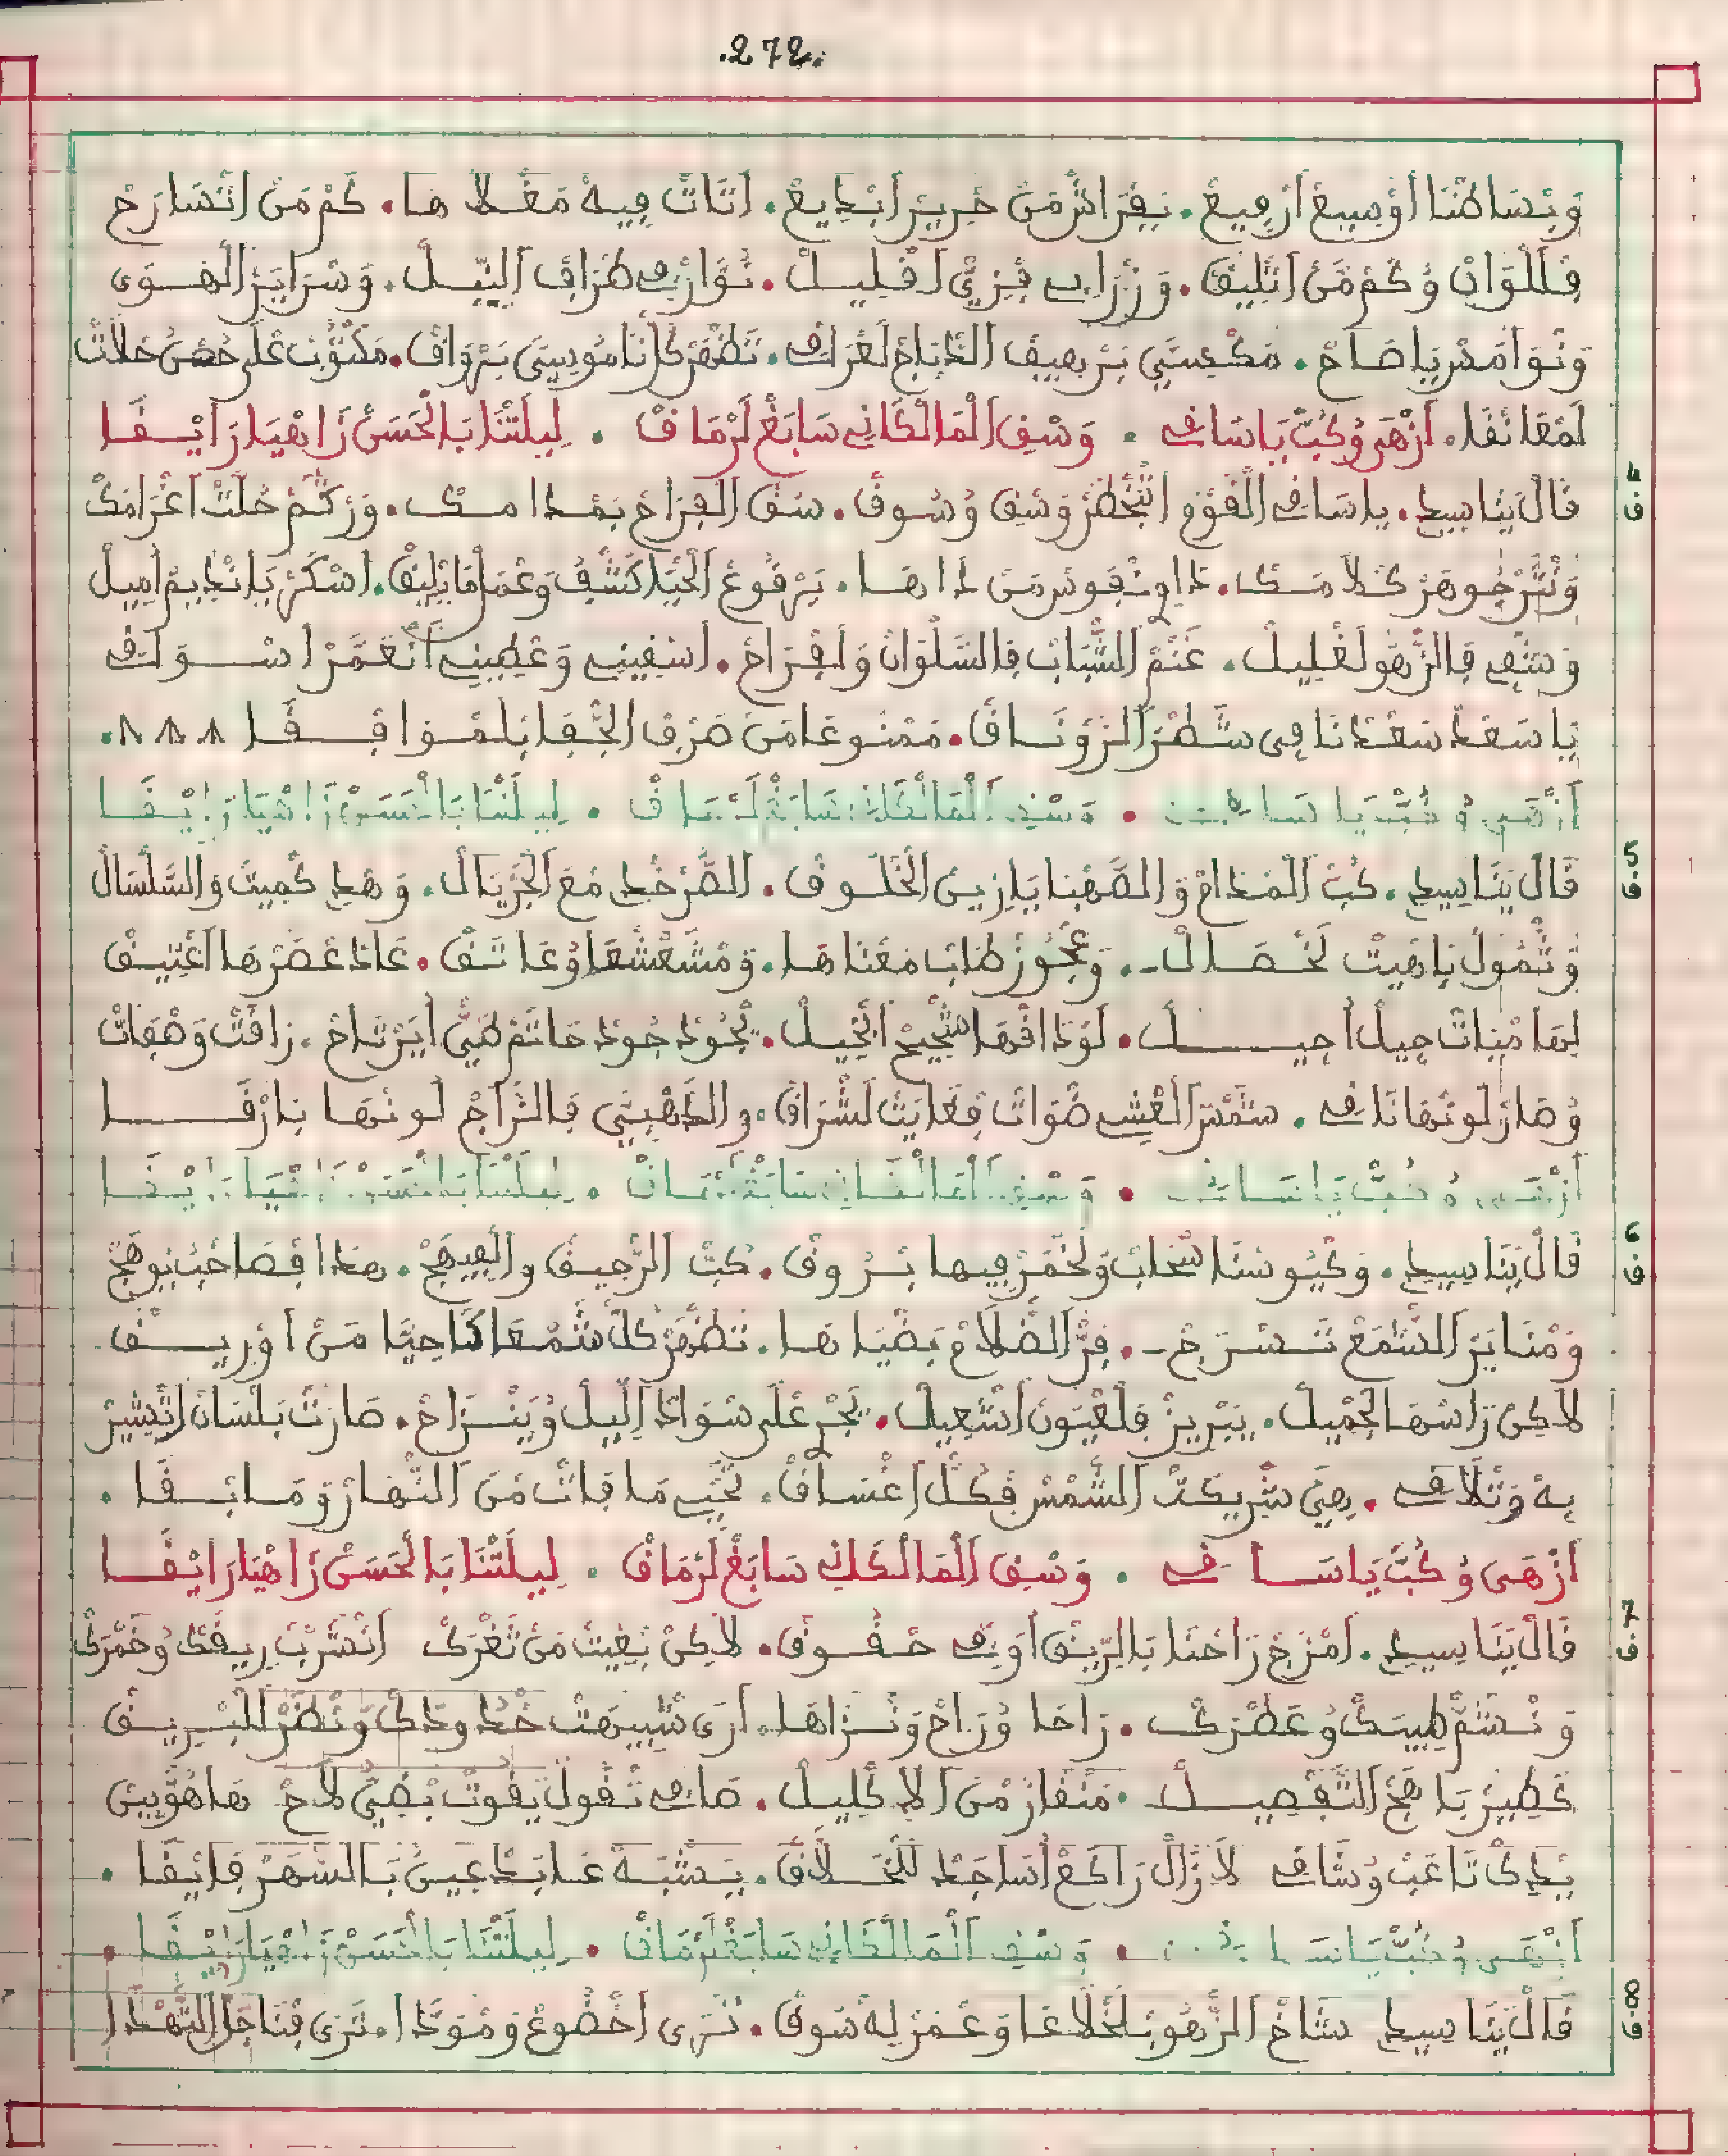 .272.
وَبْسَاطْنَا أوْسِيعْ أرْفِيعْ. بَفْرَاشْ مَنْ حْرِيرْ أبْدِيعْ. أتَاتْ فِيهْ مَغْلَا هَا. كَمْ مَنْ اتْسَارَحْ
فَلْلَوَانْ وُكَمْ مَنْ اتْلِيقْ. وَزْرَابِي فَزْيْ اقْلِيلْ. نْوَارْ فِي طْرَافْ النِّيلْ. وَسْرَايَرْ الْهَوَى
وَنْوَامَسْ يَا صَاحْ. مَكْسِيِّينْ بَرْهِيفْ الدِّبَاجْ لَعْرَاقِي. تَظْهَرْ كُلْ نَامُوسِيَّى بَرْوَاقْ. مَكْتُوبْ عْلَى حُصْنْ حَلَّاتْ
لَمْعَانْقَا. أزْهَى وُكُبّْ يَا سَاقِي . وَسْقِ الْمَالْكَانِي سَابَغْ لَرْمَاقْ . لِيلَتْنَا بَالْحَسَنْ زَاهْيَا رَايْقَا
4 ف
قَالْ يَتَا سِيدِي. يا سَاقِي الْقَوْمْ اتْحْظَرْ وَسْقِ وُسُوقْ. سَقْ الْفْرَاحْ بَمْدَامَكْ. وَزْكَمْ خَلَّتْ اغْرَامَكْ
وَنْثَرْ جُوهَرْ كْلَامَكْ. دَاوِي نْفُوسْ مَنْ دَاهَا. بَرْقُوعْ الْحْيَا كَشْفُ وَعْمَلْ مَا يْلِيقْ. اسْكَرْ يَا نْدِيمْ امِيلْ
وَشْفِي فَالزّْهُو لَغْلِيلْ. غْنَمْ الشَّبَابْ فَالسَّلْوَانْ وَلَفْرَاحْ. أسْقِينِي وَعْطِينِي أنْعَمَّرْ اسْوَاقِي
يَا سَعْدْ سَعْدْنَا فِي سَطْرْ الرَّوْنَاقْ. مَمْنُوعَا مَنْ صَرْفْ الْجْفَا بَلْمْوَافْقَا
أزْهَى وُكُبّْ يَا سَاقِي . وَسْقِ الْمَالْكَانِي سَابَغْ لَرْمَاقْ . لِيلَتْنَا بَالْحَسَنْ زَاهْيَا رَايْقَا
5 ف
قَالْ يَتَا سِيدِي. كُبّْ الْمْدَامْ وَالصَّهْبَا يَا زِينْ الْخْلُوقْ. الصَّرْخْدِ مْعَ الْجَرْيَالْ. وَهْدِ كْمِيتْ وَالسَّلْسَالْ
وُشْمُولْ بَاهْيَتْ لَخْصَالْ. وَعْجُوزْ طَابْ مَعْنَاهَا. وَمْشَعْشْعَا وُعَاتَقْ. عَادْ عَصْرْهَا اعْتِيقْ
لِهَا مْنِ اتْ جِيلْ أجِيلْ. لَوْ دَاقْهَا شْحِيحْ ابْخِيلْ. يْجُودْ جُودْ حَاتَمْ طَيّْ أيَرْتَاحْ. رَاقَتْ وَهْفَاتْ
وُصَارْ لُونْهَا نَاقِي. شَمْسْ الْعْشِي ضْوَاتْ فَعْلَايَتْ لَشْرَاقْ. والدَّهْبِيِّي فَالزَّاجْ لُونْهَا بَارْقَا
أزْهَى وُكُبّْ يَا سَاقِي . وَسْقِ الْمَالْكَانِي سَابَغْ لَرْمَاقْ . لِيلَتْنَا بَالْحَسَنْ زَاهْيَا رَايْقَا
6 ف
قَالْ يَتَا سِيدِي. وَكْيُوسْنَا سْحَابْ وَلْخْمَرْ فِيهَا بْرُوقْ. كُبّْ الرّْحِيقْ وَالْفِيهَجْ. هَدَا فْصَاحَبْ بُوهَجْ
وَمْنَايَرْ الشّْمَعْ تَسْرَجْ. فَرّْ الظْلَامْ بَضْيَاهَا. تَظْهَرْ كُلّْ شَمْعَا كَاحِيَّا مَنْ أوْرِيقْ
لَاكِنْ رَاسْهَا لَجْمِيلْ. يَبْرِيزْ فَلْعْيُونْ اشْعِيلْ. يَجْرِ عْلَى سْوَادْ اللِّيلْ وُيَنْزَاحْ. صَارَتْ بَلْسَانْ اتْشِيرْ
بِهْ وَتْلَاقِي. هِيَّ شْرِيكَتْ الشَّمْسْ فَكُلّْ اغْسَاقْ. تْحْيِي مَا فَاتْ مَنْ النّْهَارْ وَمَا بْقَا .
أزْهَى وُكُبّْ يَا سَاقِي . وَسْقِ الْمَالْكَانِي سَابَغْ لَرْمَاقْ . لِيلَتْنَا بَالْحَسَنْ زَاهْيَا رَايْقَا
7 ف
قَالْ يَتَا سِيدِي. امْزَجْ رَاحْنَا بَالرِّيقْ أوْفِي حْقُوقْ. لَاكِنْ بْغِيتْ مَنْ ثَغْرَكْ أنْشْرَبْ رِيقْكْ وُخَمْرَكْ
وَنْشَمّْ طِيبَكْ وُعَطْرَكْ. رَاحَا وُرَاحْ وَنْزَاهَا. أرَى شْبِيهَتْ خْدُودَكْ وَنْظَرْ لَلْبْرِيقْ
كَطِيرْ بَاهَجْ التَّفْصِيلْ. مَنْقَارْ مْنَ الَاكْلِيلْ. صَافِي تْقُولْ يَاقُوتْ بْضَيّْ لَاحْ هَا هُوَ بِينْ
يْدِكْ تَاعَبْ وُشَاقِي لَا زَالْ رَاكَعْ أسَاجَدْ لَلْخَلَّاقْ. يَشْبَهْ عَابَدْ عِينُ بَالسّْهَرْ فَايْقَا .
أزْهَى وُكُبّْ يَا سَاقِي . وَسْقِ الْمَالْكَانِي سَابَغْ لَرْمَاقْ . لِيلَتْنَا بَالْحَسَنْ زَاهْيَا رَايْقَا .
8 ف
قَالْ يَتَا سِيدِي شَاخْ الزّْهُو بَلْخْلَاعَا وَعْمَرْ لِهْ سُوقْ. تْرَى اخْضُوعْ وَمْوَدَّا. تْرَى فْنَاجَلْ التَّهْدَا